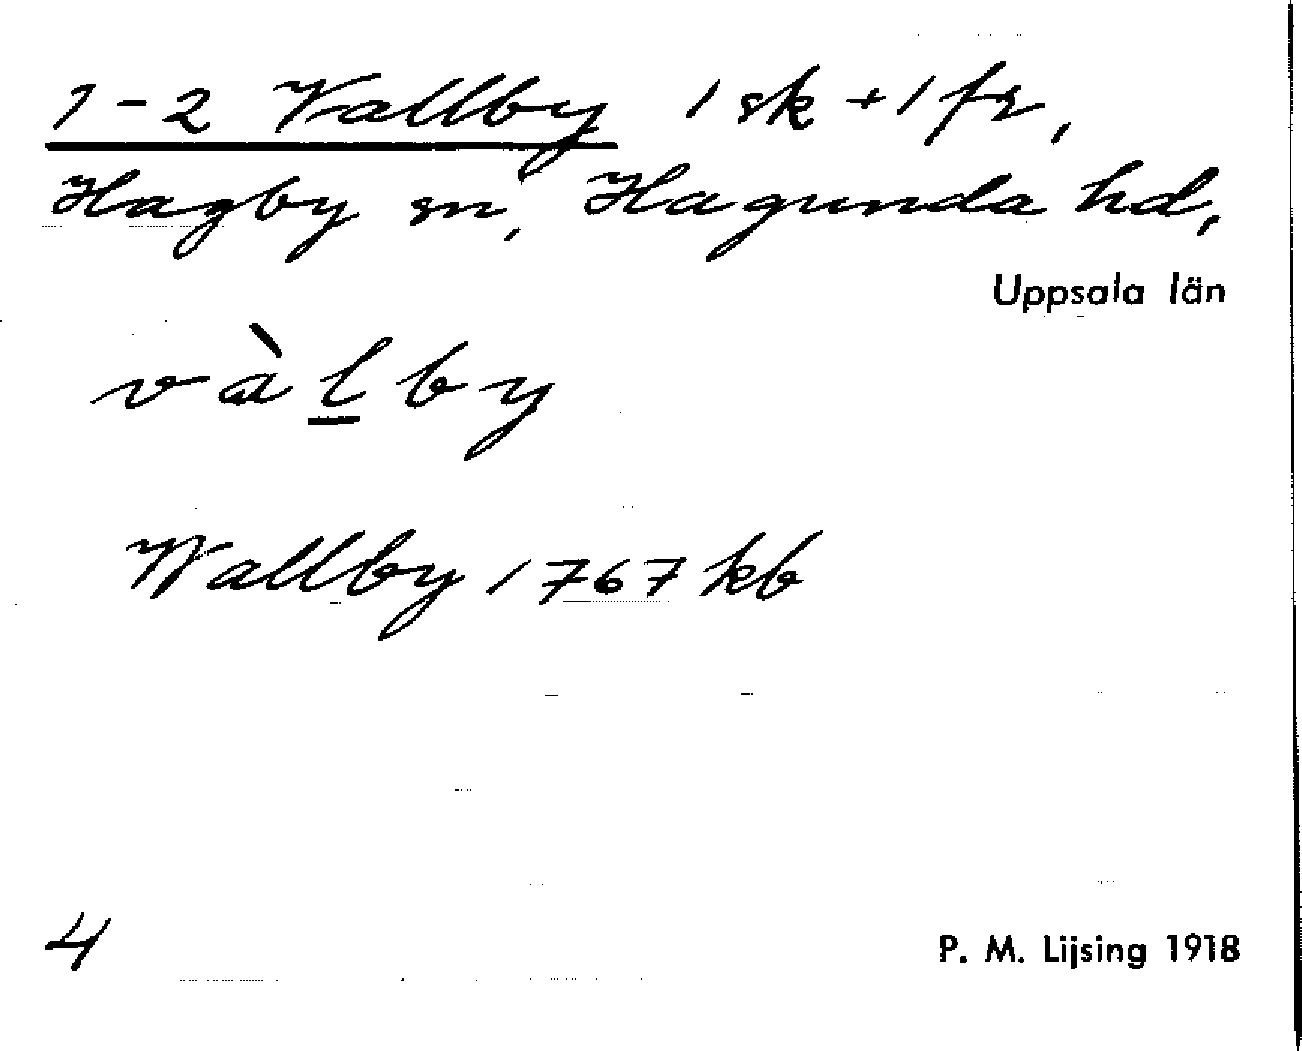 1-2 Vallby 1 sk + 1 fr,
Hagby sn, Hagunda hd,
Uppsala län
vàl̲by
Wallby 1767 kb
4
P. M. Lijsing 1918